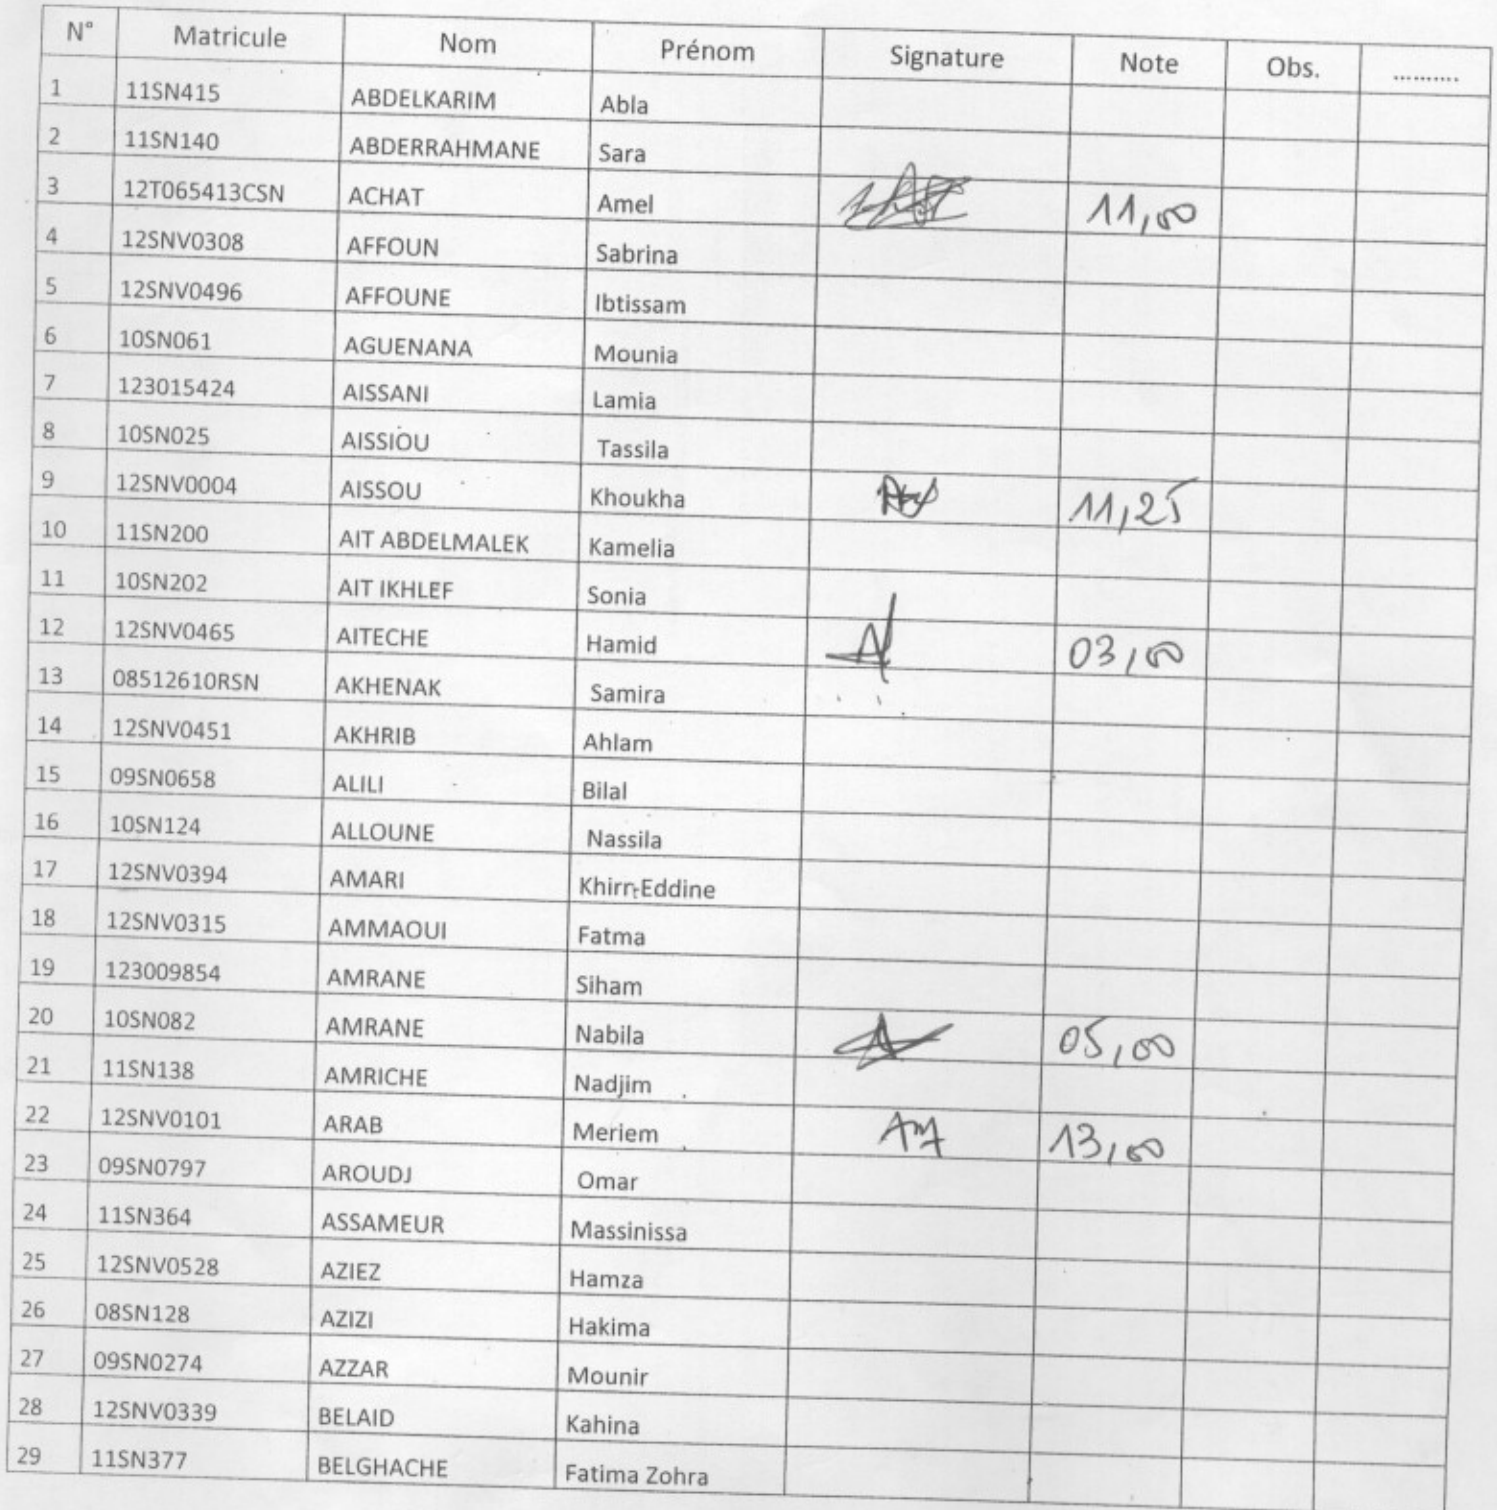 N° Matricule Nom Prénom Signature Note Obs. ..........
1 11SN415 ABDELKARIM Abla
2 11SN140 ABDERRAHMANE Sara
3 12T065413CSN ACHAT Amel 11,00
4 12SNV0308 AFFOUN Sabrina
5 12SNV0496 AFFOUNE Ibtissam
6 10SN061 AGUENANA Mounia
7 123015424 AISSANI Lamia
8 10SN025 AISSIOU Tassila
9 12SNV0004 AISSOU Khoukha 11,25
10 11SN200 AIT ABDELMALEK Kamelia
11 10SN202 AIT IKHLEF Sonia
12 12SNV0465 AITECHE Hamid 03,00
13 08512610RSN AKHENAK Samira
14 12SNV0451 AKHRIB Ahlam
15 09SN0658 ALILI Bilal
16 10SN124 ALLOUNE Nassila
17 12SNV0394 AMARI Khirr-Eddine
18 12SNV0315 AMMAOUI Fatma
19 123009854 AMRANE Siham
20 10SN082 AMRANE Nabila 05,00
21 11SN138 AMRICHE Nadjim
22 12SNV0101 ARAB Meriem 13,00
23 09SN0797 AROUDJ Omar
24 11SN364 ASSAMEUR Massinissa
25 12SNV0528 AZIEZ Hamza
26 08SN128 AZIZI Hakima
27 09SN0274 AZZAR Mounir
28 12SNV0339 BELAID Kahina
29 11SN377 BELGHACHE Fatima Zohra